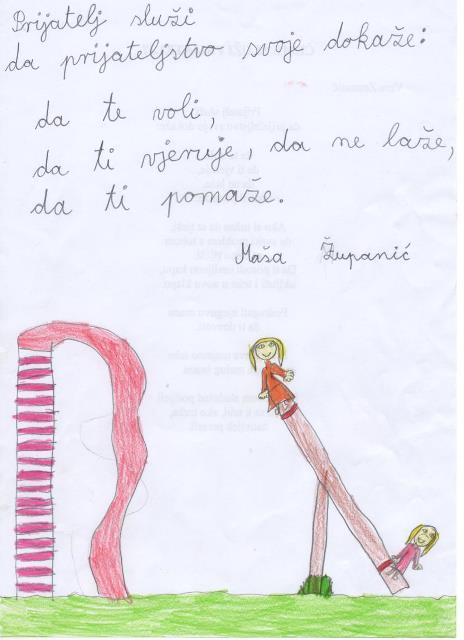 Prijatelj služi
da prijateljstvo svoje dokaže:
da te voli,
da ti vjeruje, da ne laže,
da ti pomaže.
Maša Županić